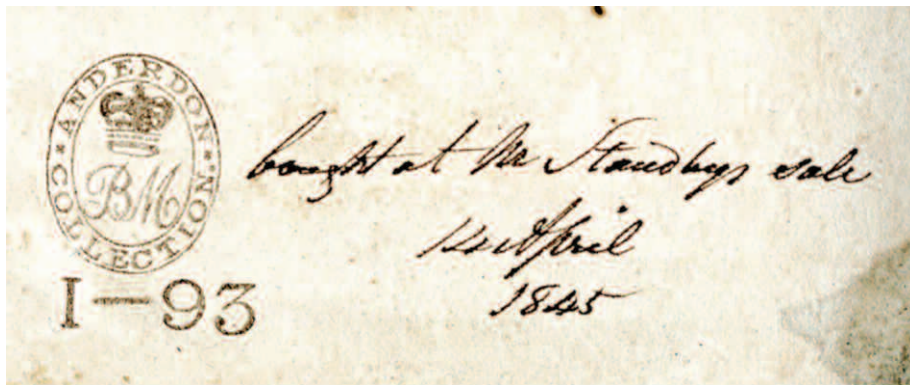 ANDERDON COLLECTION
BM
I—93
bought at Mr Standlys sale
14 April
1845